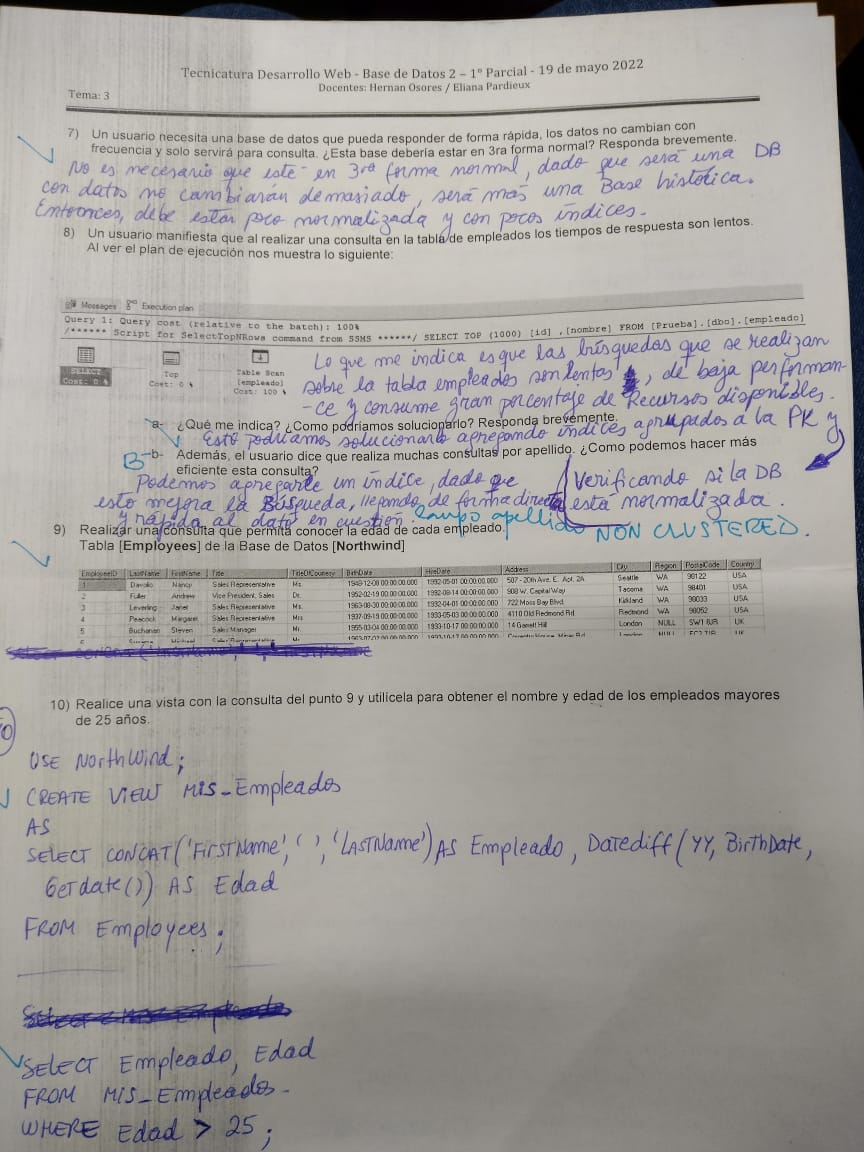 Tecnicatura Desarrollo Web - Base de Datos 2 – 1° Parcial - 19 de mayo 2022
Docentes: Hernan Osores / Eliana Pardieux
Tema: 3
7) Un usuario necesita una base de datos que pueda responder de forma rápida, los datos no cambian con
frecuencia y solo servirá para consulta. ¿Esta base debería estar en 3ra forma normal? Responda brevemente.
No es necesario que esté en 3ra forma normal, dado que será una DB
con datos no cambiarán demasiado, será más una Base histórica.
Entonces, debe estar poco normalizada y con pocos índices.
8) Un usuario manifiesta que al realizar una consulta en la tabla de empleados los tiempos de respuesta son lentos.
Al ver el plan de ejecución nos muestra lo siguiente:
Messages Execution plan
Query 1: Query cost (relative to the batch): 100%
/****** Script for SelectTopNRows command from SSMS ******/ SELECT TOP (1000) [id] ,[nombre] FROM [Prueba].[dbo].[empleado]
SELECT
Cost: 0 %
Top
Cost: 0 %
Table Scan
[empleado]
Cost: 100 %
Lo que me indica es que las búsquedas que se realizan
sobre la tabla empleados son lentas, de baja performan-
-ce y consume gran porcentaje de Recursos disponibles.
a- ¿Qué me indica? ¿Como podríamos solucionarlo? Responda brevemente.
Esto podríamos solucionarlo agregando índices agrupados a la PK y
verificando si la DB
está normalizada.
B
b- Además, el usuario dice que realiza muchas consultas por apellido. ¿Como podemos hacer más
eficiente esta consulta?
Podemos agregarle un índice, dado que
esto mejora la Búsqueda, llegando de forma directa
y rápida al dato en cuestión. campo apellido NON CLUSTERED.
9) Realizar una consulta que permita conocer la edad de cada empleado.
Tabla [Employees] de la Base de Datos [Northwind]
EmployeeID LastName FirstName Title TitleOfCourtesy BirthDate HireDate Address City Region PostalCode Country
1 Davolio Nancy Sales Representative Ms. 1948-12-08 00:00:00.000 1992-05-01 00:00:00.000 507 - 20th Ave. E. Apt. 2A Seattle WA 98122 USA
2 Fuller Andrew Vice President, Sales Dr. 1952-02-19 00:00:00.000 1992-08-14 00:00:00.000 908 W. Capital Way Tacoma WA 98401 USA
3 Leverling Janet Sales Representative Ms. 1963-08-30 00:00:00.000 1992-04-01 00:00:00.000 722 Moss Bay Blvd. Kirkland WA 98033 USA
4 Peacock Margaret Sales Representative Mrs. 1937-09-19 00:00:00.000 1993-05-03 00:00:00.000 4110 Old Redmond Rd. Redmond WA 98052 USA
5 Buchanan Steven Sales Manager Mr. 1955-03-04 00:00:00.000 1993-10-17 00:00:00.000 14 Garrett Hill London NULL SW1 8JR UK
10) Realice una vista con la consulta del punto 9 y utilícela para obtener el nombre y edad de los empleados mayores
de 25 años.
USE NorthWind;
CREATE VIEW MIS_Empleados
AS
SELECT CONCAT('FirstName',' ','LASTName') AS Empleado, Datediff(YY, BirthDate,
Getdate()) AS Edad
FROM Employees;
SELECT Empleado, Edad
FROM MIS_Empleados
WHERE Edad > 25;